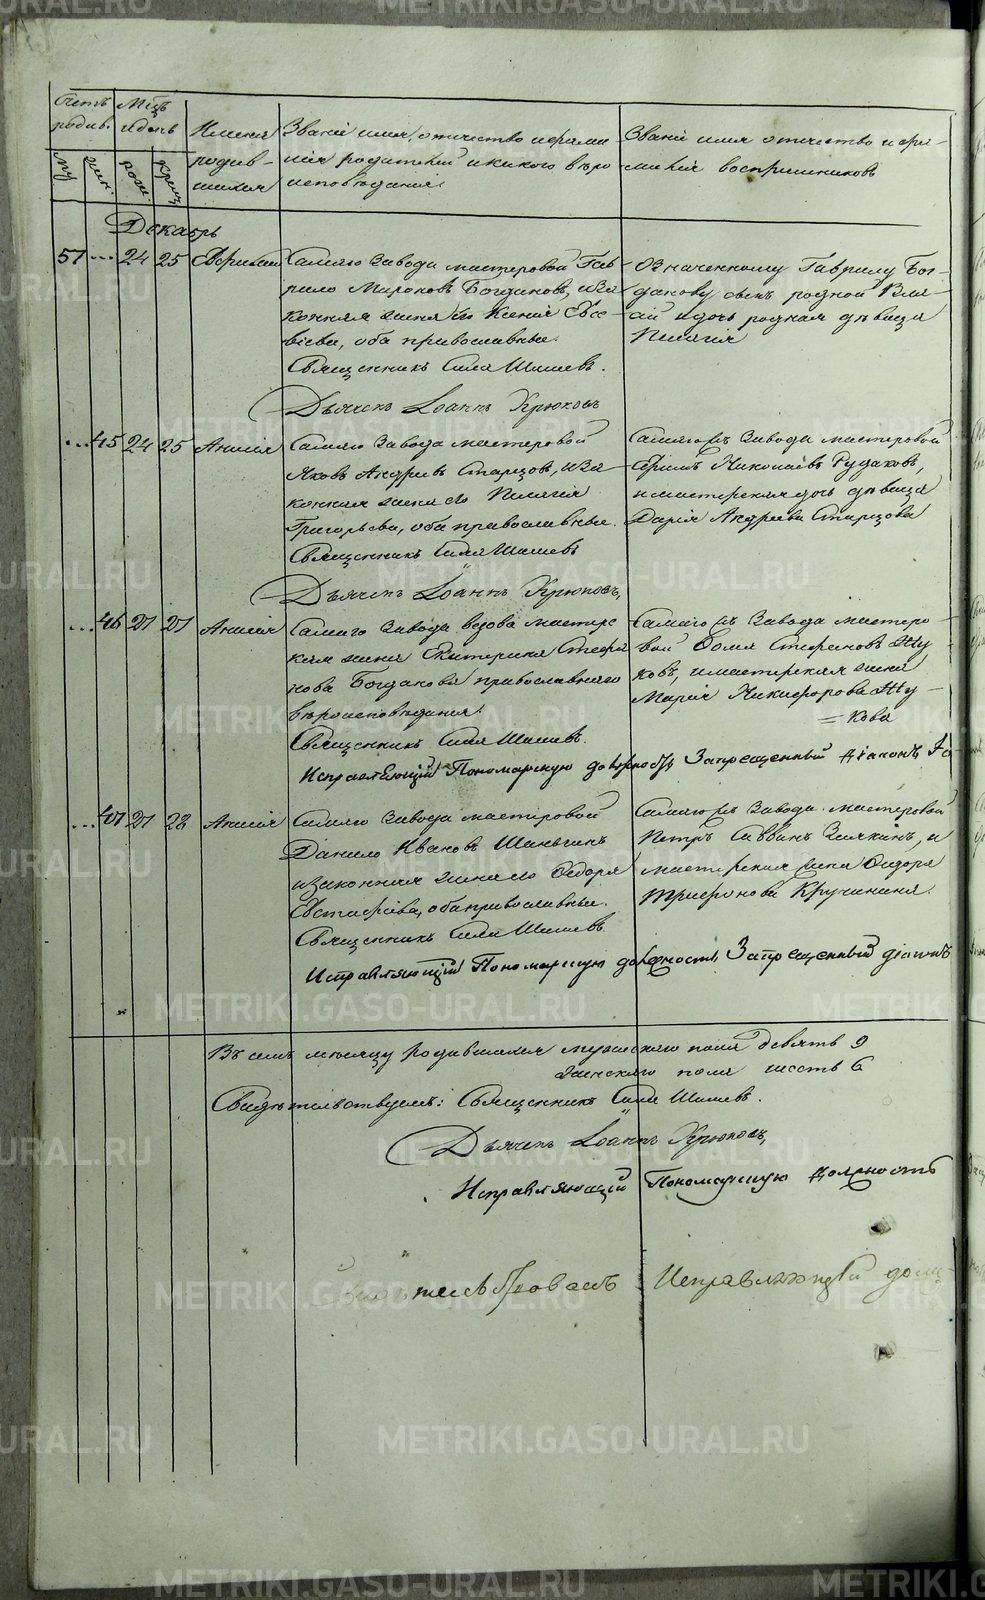 METRIKI.GASO-URAL.RU
Счетъ родив. Мѣцъ и день Имена родив-шихся
Званіе имя, отчество и фами-лія родителей и какого вѣро исповѣданія.
Званіе имя отчество и фа-милія воспріемниковъ
му жен. рожд. крещ.
Декабрь
57 ... 24 25
Самаго Завода мастеровой Гав-
рило Мироновъ Богдановъ, и за
конная жена его Ксенія Евсе
віева, оба православные.
Священникъ Сила Шишевъ.
Дьячекъ Іоаннъ Крюковъ
Означенному Гаврилу Бог-
данову сынъ родной
и дочь родная дѣвица
Пелагія
... 45 24 25 Анисія
Самаго Завода мастеровой
Яковъ Андреевъ Старцовъ, и за
конная жена его Пелагія
Григорьева, оба православные.
Священникъ Сила Шишевъ
Дьячекъ Іоаннъ Крюковъ,
Самаго жъ Завода мастеровой
Ефимъ Николаевъ Рудаковъ,
и мастерская дочь дѣвица
Дарія Андреева Старцова
... 46 27 27 Анисія
Самаго Завода вдова мастерс
кая жена Екатерина Стефа
нова Богданова православнаго
вѣроисповѣданія.
Священникъ Сила Шишевъ.
Исправляющій Пономарскую должность Запрещенный діаконъ
Самаго жъ Завода мастеро-
вой Фома Стефановъ Жу
ковъ, и мастерская жена
Марія Никифорова Жу-
= кова
... 47 27 28 Анисія
Самаго Завода мастеровой
Данило Ивановъ Шаньгинъ
и законная жена его Ѳедора
Евстафіева, оба православные.
Священникъ Сила Шишевъ
Исправляющій Пономарскую должность, Запрещенный діаконъ
Самаго жъ Завода мастеровой
Петръ Саввинъ Зыкинъ, и
мастерская жена Ѳедора
Трифонова Кручинина.
Въ семъ мѣсяцѣ родившихся мужескаго пола девять 9
Женскаго пола шесть 6
Свидѣтельствуемъ: Священникъ Сила Шишевъ.
Дьячекъ Іоаннъ Крюковъ,
Исправляющій Пономарскую должность
Исправляющій